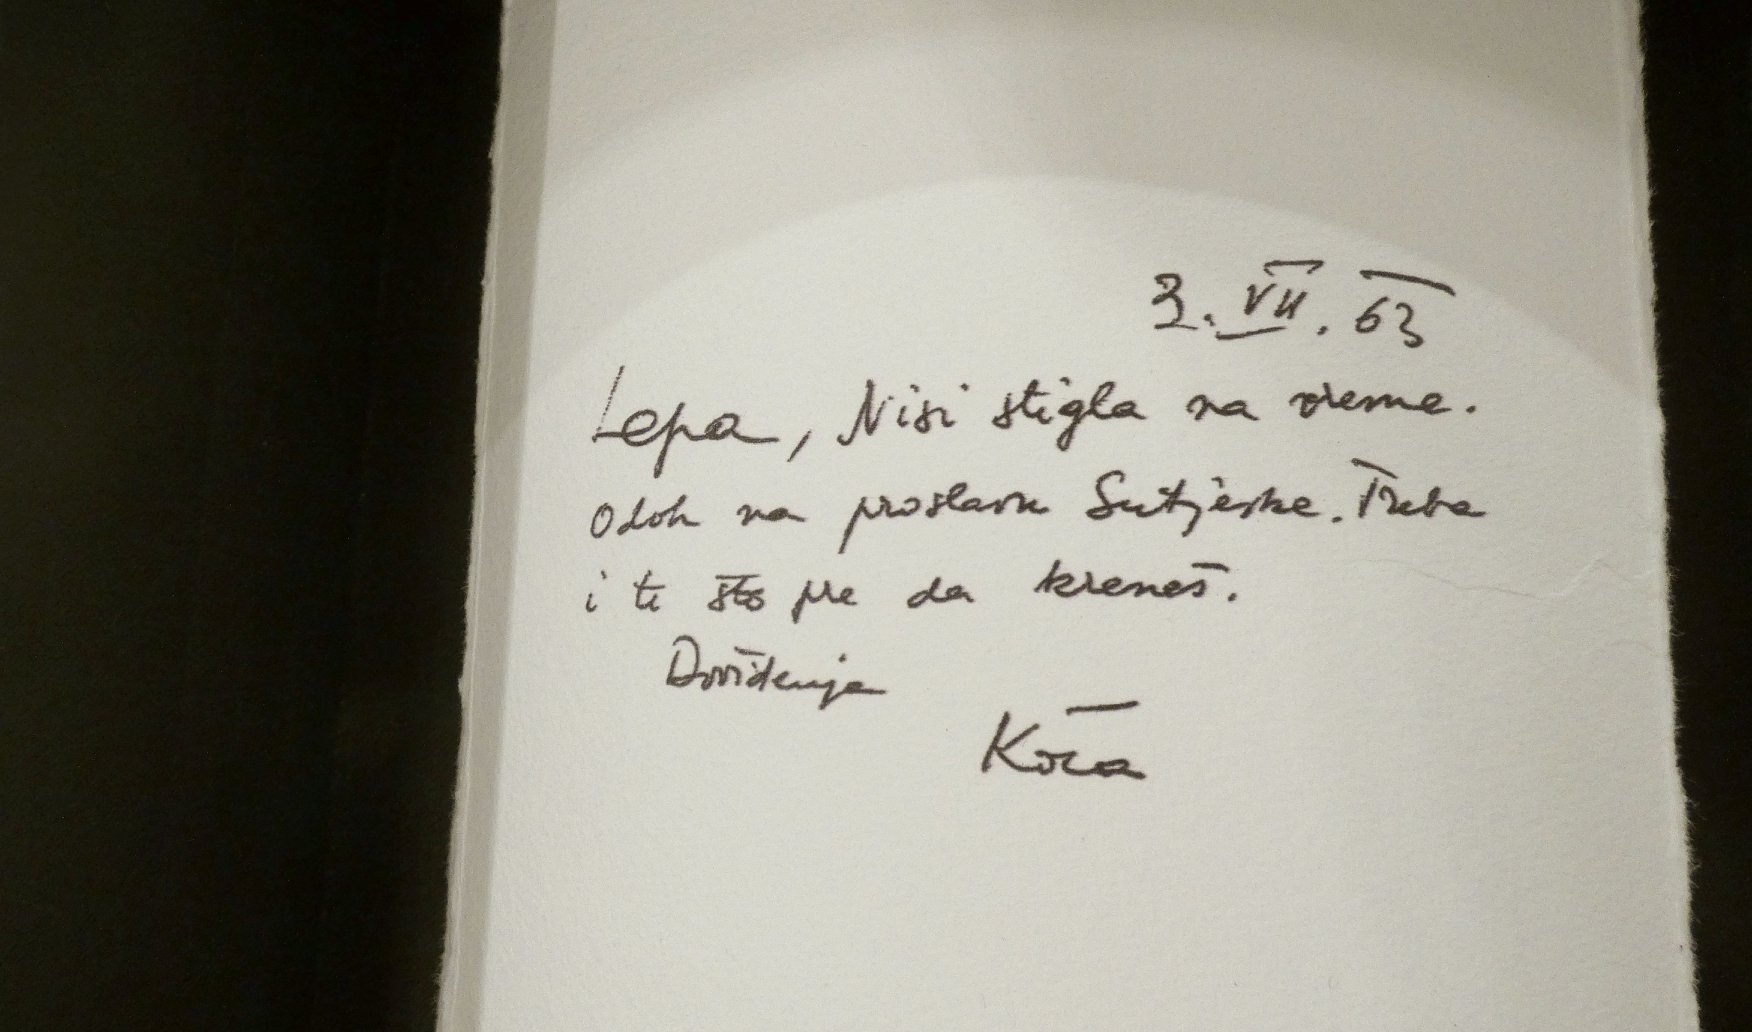 3. VII. 63
Lepa, Nisi stigla na vreme.
Odoh na proslavu Sutjeske. Treba
i ti što pre da kreneš.
Doviđenja
Koča